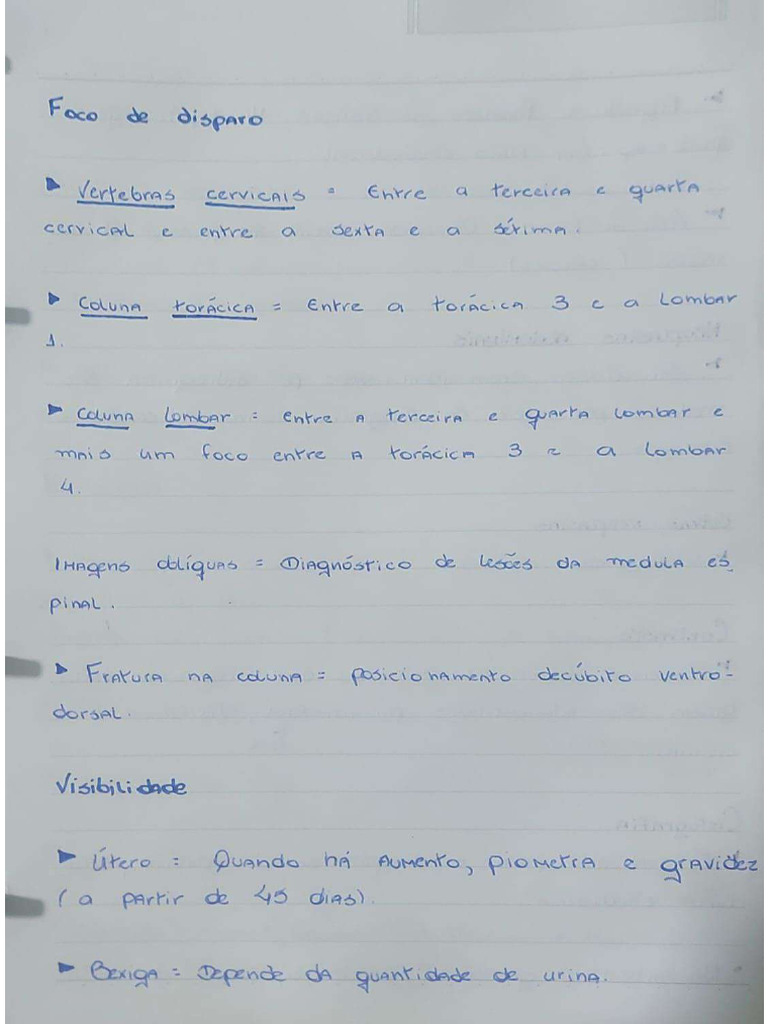 Foco de disparo
► Vertebras cervicais = Entre a terceira e quarta
cervical e entre a sexta e a sétima.
► Coluna torácica = Entre a torácica 3 e a lombar
1.
► Coluna lombar = entre a terceira e quarta lombar e
mais um foco entre a torácica 3 e a lombar
4.
Imagens oblíquas = Diagnóstico de lesões da medula es
pinal.
► Fratura na coluna = posicionamento decúbito ventro-
dorsal.
Visibilidade
► Útero = Quando há aumento, piometra e gravidez
(a partir de 45 dias).
► Bexiga = Depende da quantidade de urina.